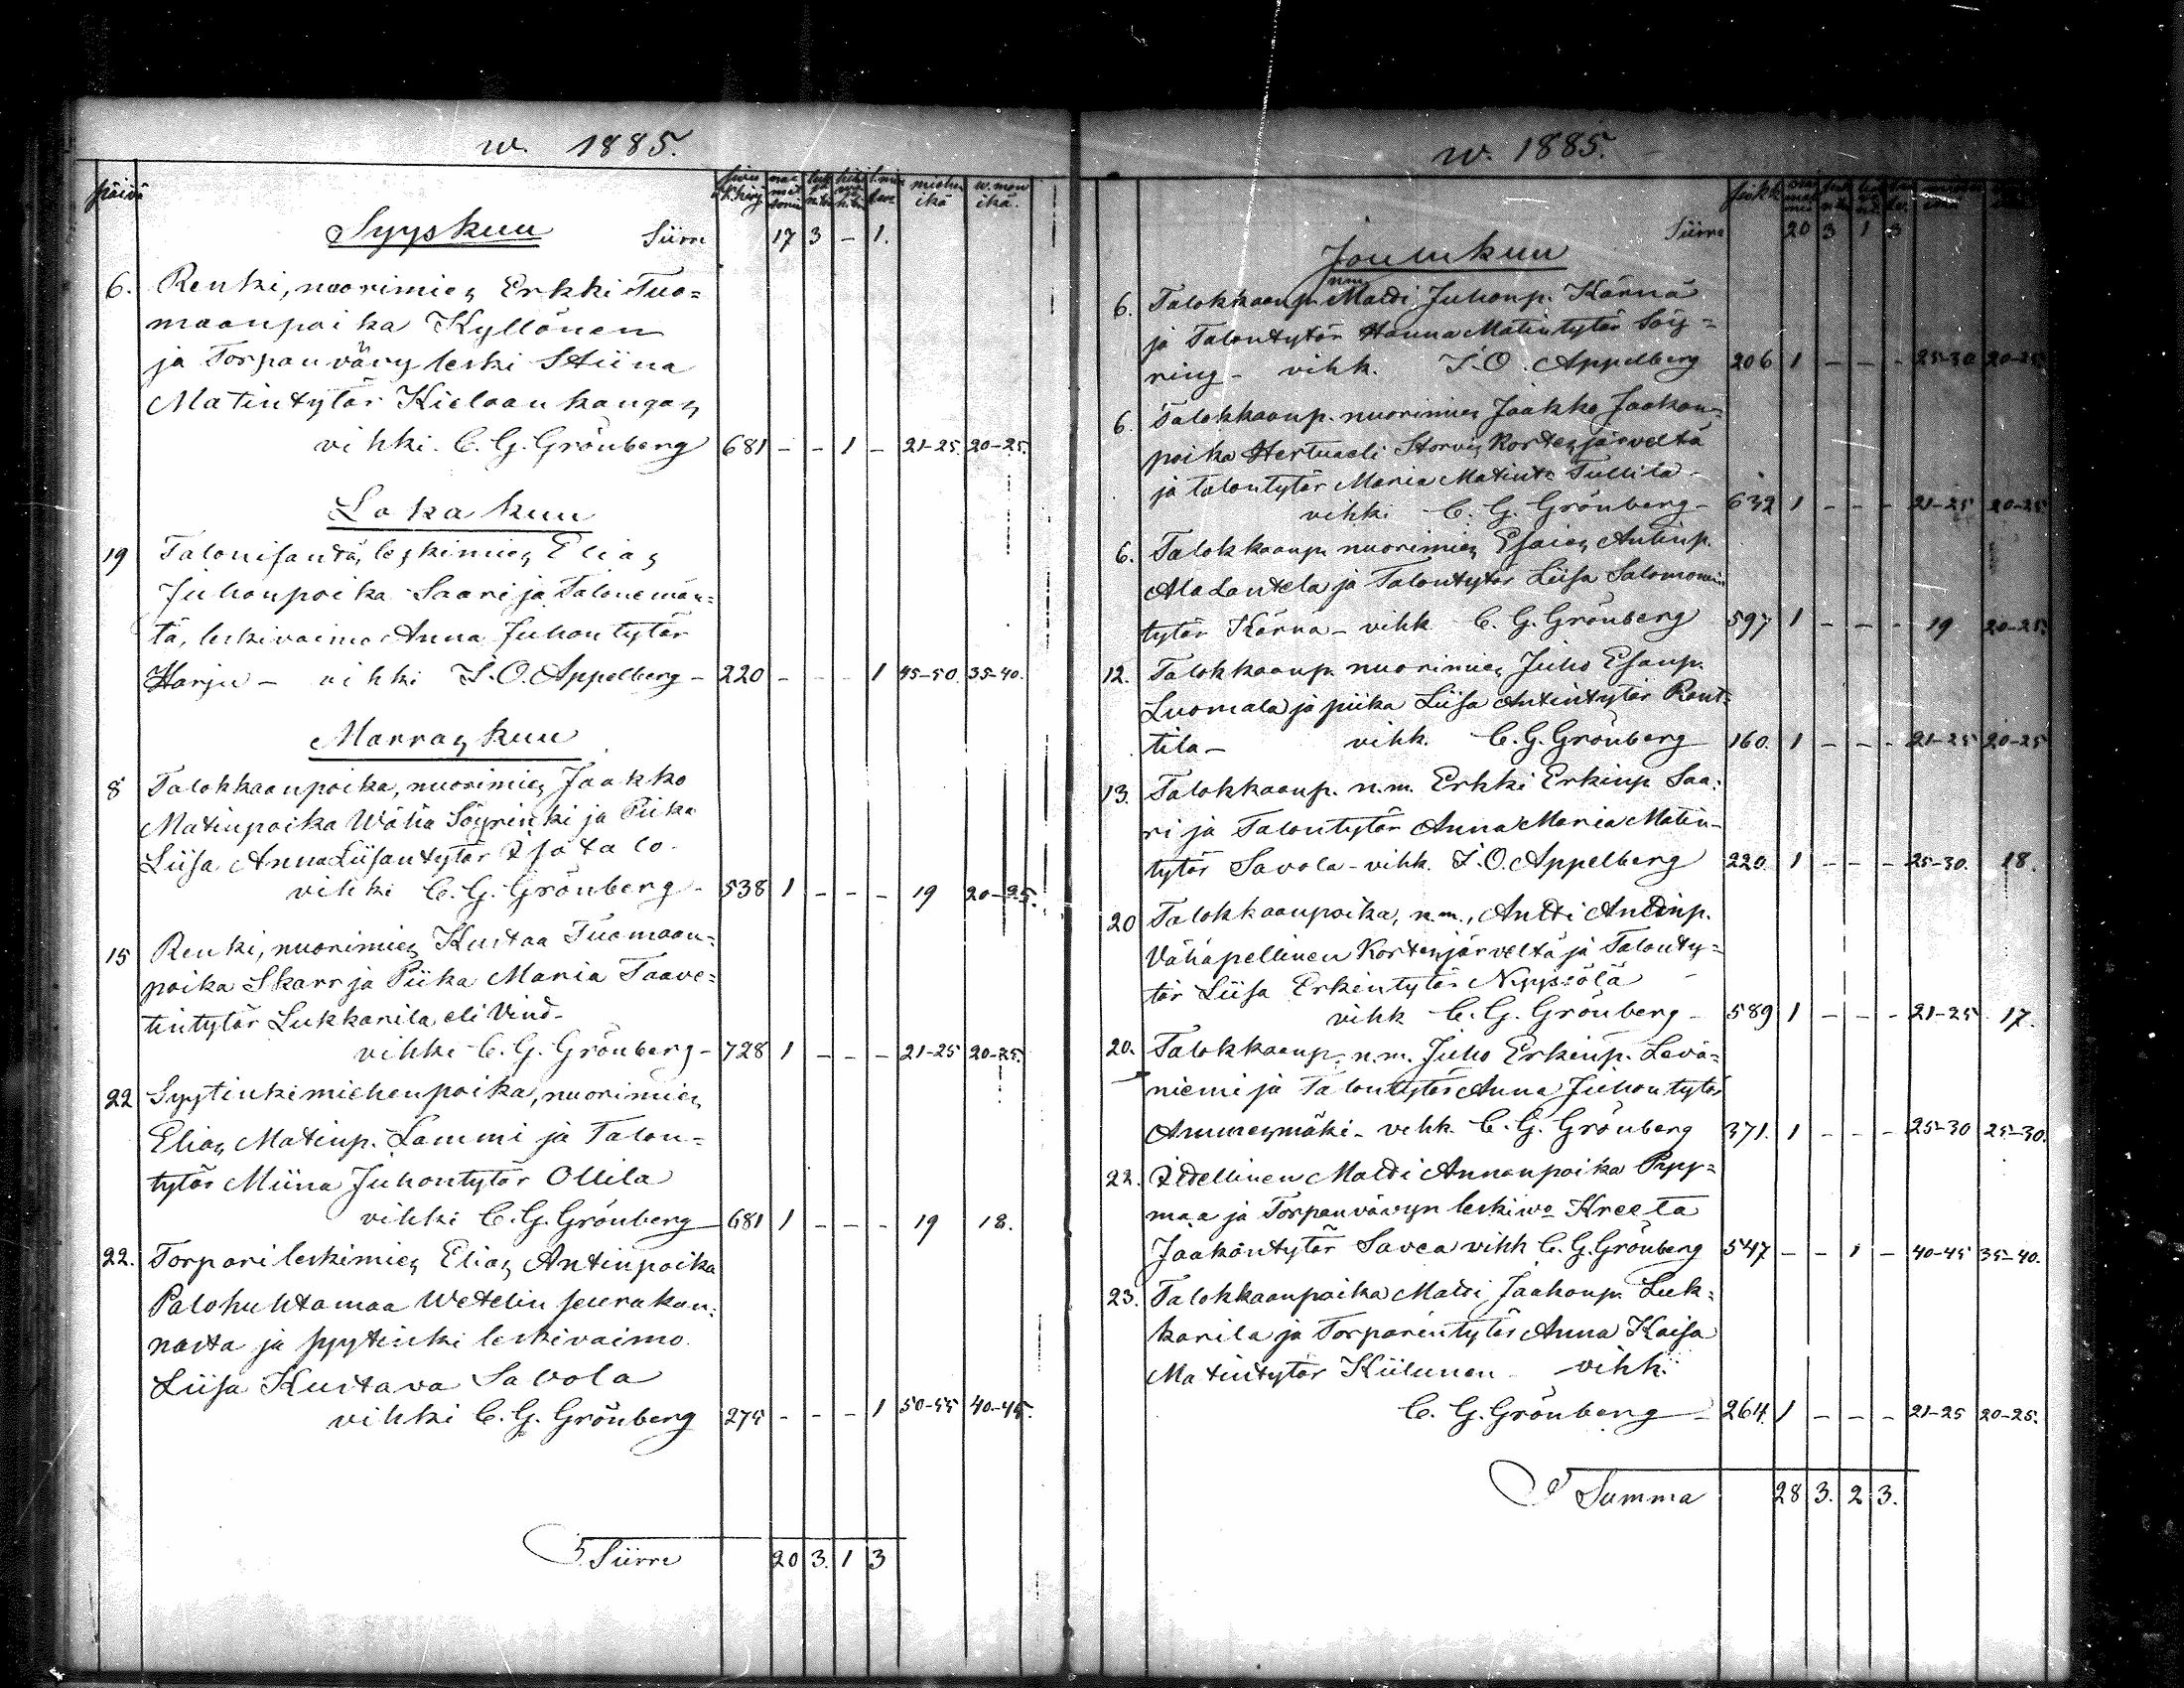 w. 1885.
päivä
miehen ikä
w.mon ikä.
Syyskuu Siirre 17 3 – 1.
6. Renki, nuorimies Erkki Tuo=
maanpoika Kyllönen
ja Torpanvävy leski Stiina
Matintytär Kielaankangas
vihki. C. G. Grönberg 681 – – 1 – 21–25. 20–25.
Lokakuu
19 Talonisäntä, leskimies Elias
Juhonpoika Saari ja Talonemän=
tä, leskivaimo Anna Juhontytär
Harju – vihki I. O. Appelberg – 220 – – – 1 45–50. 35–40.
Marraskuu
8 Talokkaanpoika, nuorimies Jaakko
Matinpoika Wähä Söyrinki ja Piika
Liisa AnnaLiisantytär Isotalo.
vihki C. G. Grönberg – 538 1 – – – 19 20–25.
15 Renki, nuorimies Kustaa Tuomaan=
poika Skarr ja Piika Maria Taave=
tintytär Lukkarila eli Vind–
vihki C. G. Grönberg – 728 1 – – – 21–25 20–25.
22 Syytinkimiehenpoika, nuorimies
Elias Matinp. Lammi ja Talon=
tytär Miina Juhontytär Ollila
vihki C. G. Grönberg – 681 1 – – – 19 18.
22. Torpari leskimies Elias Antinpoika
Palohuhtamaa Wetelin seurakun=
nasta ja syytinki leskivaimo.
Liisa Kustava Savola
vihki C. G. Grönberg 275 – – – 1 50–55 40–45.
Siirre 20 3. 1 3
w. 1885.
Siirre 20 3 1 3
Joulukuu
6. Talokkaanp. nm. Matti Juhonp. Kärnä
ja Talontytär Hanna Matintytär Söy=
ring – vihk. I. O. Appelberg 206 1 – – – 25–30 20–25
6. Talokkaanp. nuorimies Jaakko Jaakon=
poika Hertuali Storvis Kortesjärveltä
ja talontytär Maria Matint: Tullila –
vihki C. G. Grönberg – 632 1 – – – 21–25 20–25
6. Talokkaanp. nuorimies Esaias Antinp.
Ala Lantela ja Talontytär Liisa Salomonin
tytär Kärnä – vihk C. G. Grönberg 597 1 – – – 19 20–25.
12. Talokkaanp. nuorimies Juho Esanp.
Luomala ja piika Liisa Antintytär Rant=
tila – vihk. C. G. Grönberg 160. 1 – – – 21–25 20–25
13. Talokkaanp. n.m. Erkki Erkinp. Saa=
ri ja Talontytär Anna Maria Matin–
tytär Savola – vihk. I. O. Appelberg 220. 1 – – – 25–30. 18.
20 Talokkaanpoika, n.m., Antti Antinp.
Vähäpellinen Kortesjärveltä ja Talonty=
tär Liisa Erkintytär Nyyssölä –
vihk C. G. Grönberg – 589 1 – – – 21–25 17.
20. Talokkaanp. n.m. Juho Erkinp. Levä=
niemi ja Talontytär Anna Juhontytär
Ammesmäki – vihk C. G. Grönberg 371. 1 – – – 25–30 25–30.
22. Itdellinen Matti Annanpoika Pyy=
maa ja Torpanvävyn leskiwo Kreeta
Jaakontytär Savea vihk C. G. Grönberg 547 – – 1 – 40–45 35–40.
23. Talokkaanpoika Matti Jaakonp. Luk=
karila ja Torparintytär Anna Kaisa
Matintytär Kiilunen – vihk.
C. G. Grönberg – 264. 1 – – – 21–25 20–25.
Summa 28 3. 2 3.